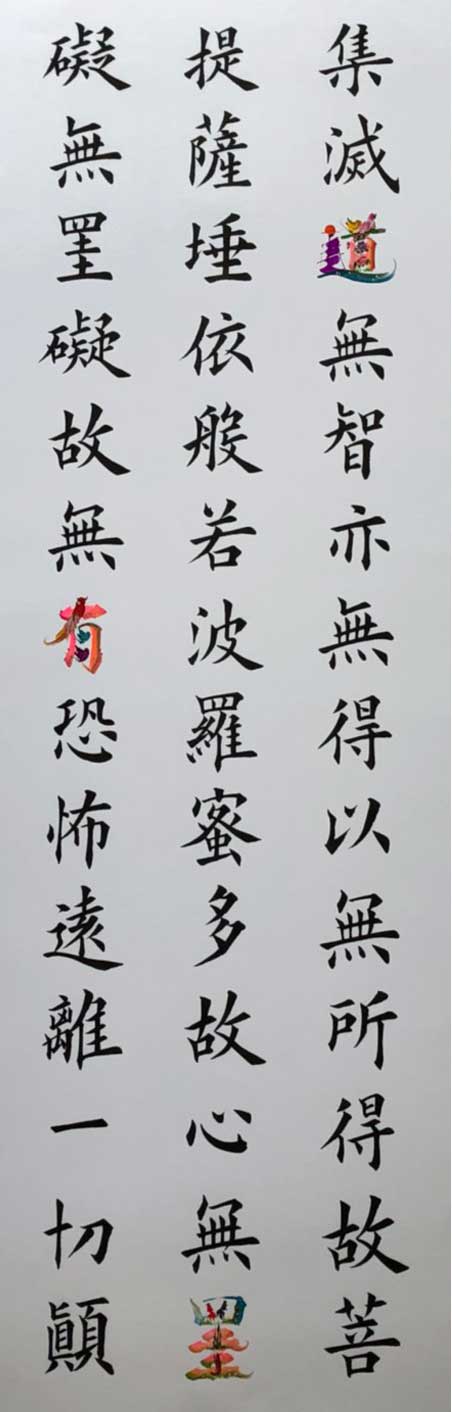 集滅道無智亦無得以無所得故菩
提薩埵依般若波羅蜜多故心無罣
礙無罣礙故無有恐怖遠離一切顛